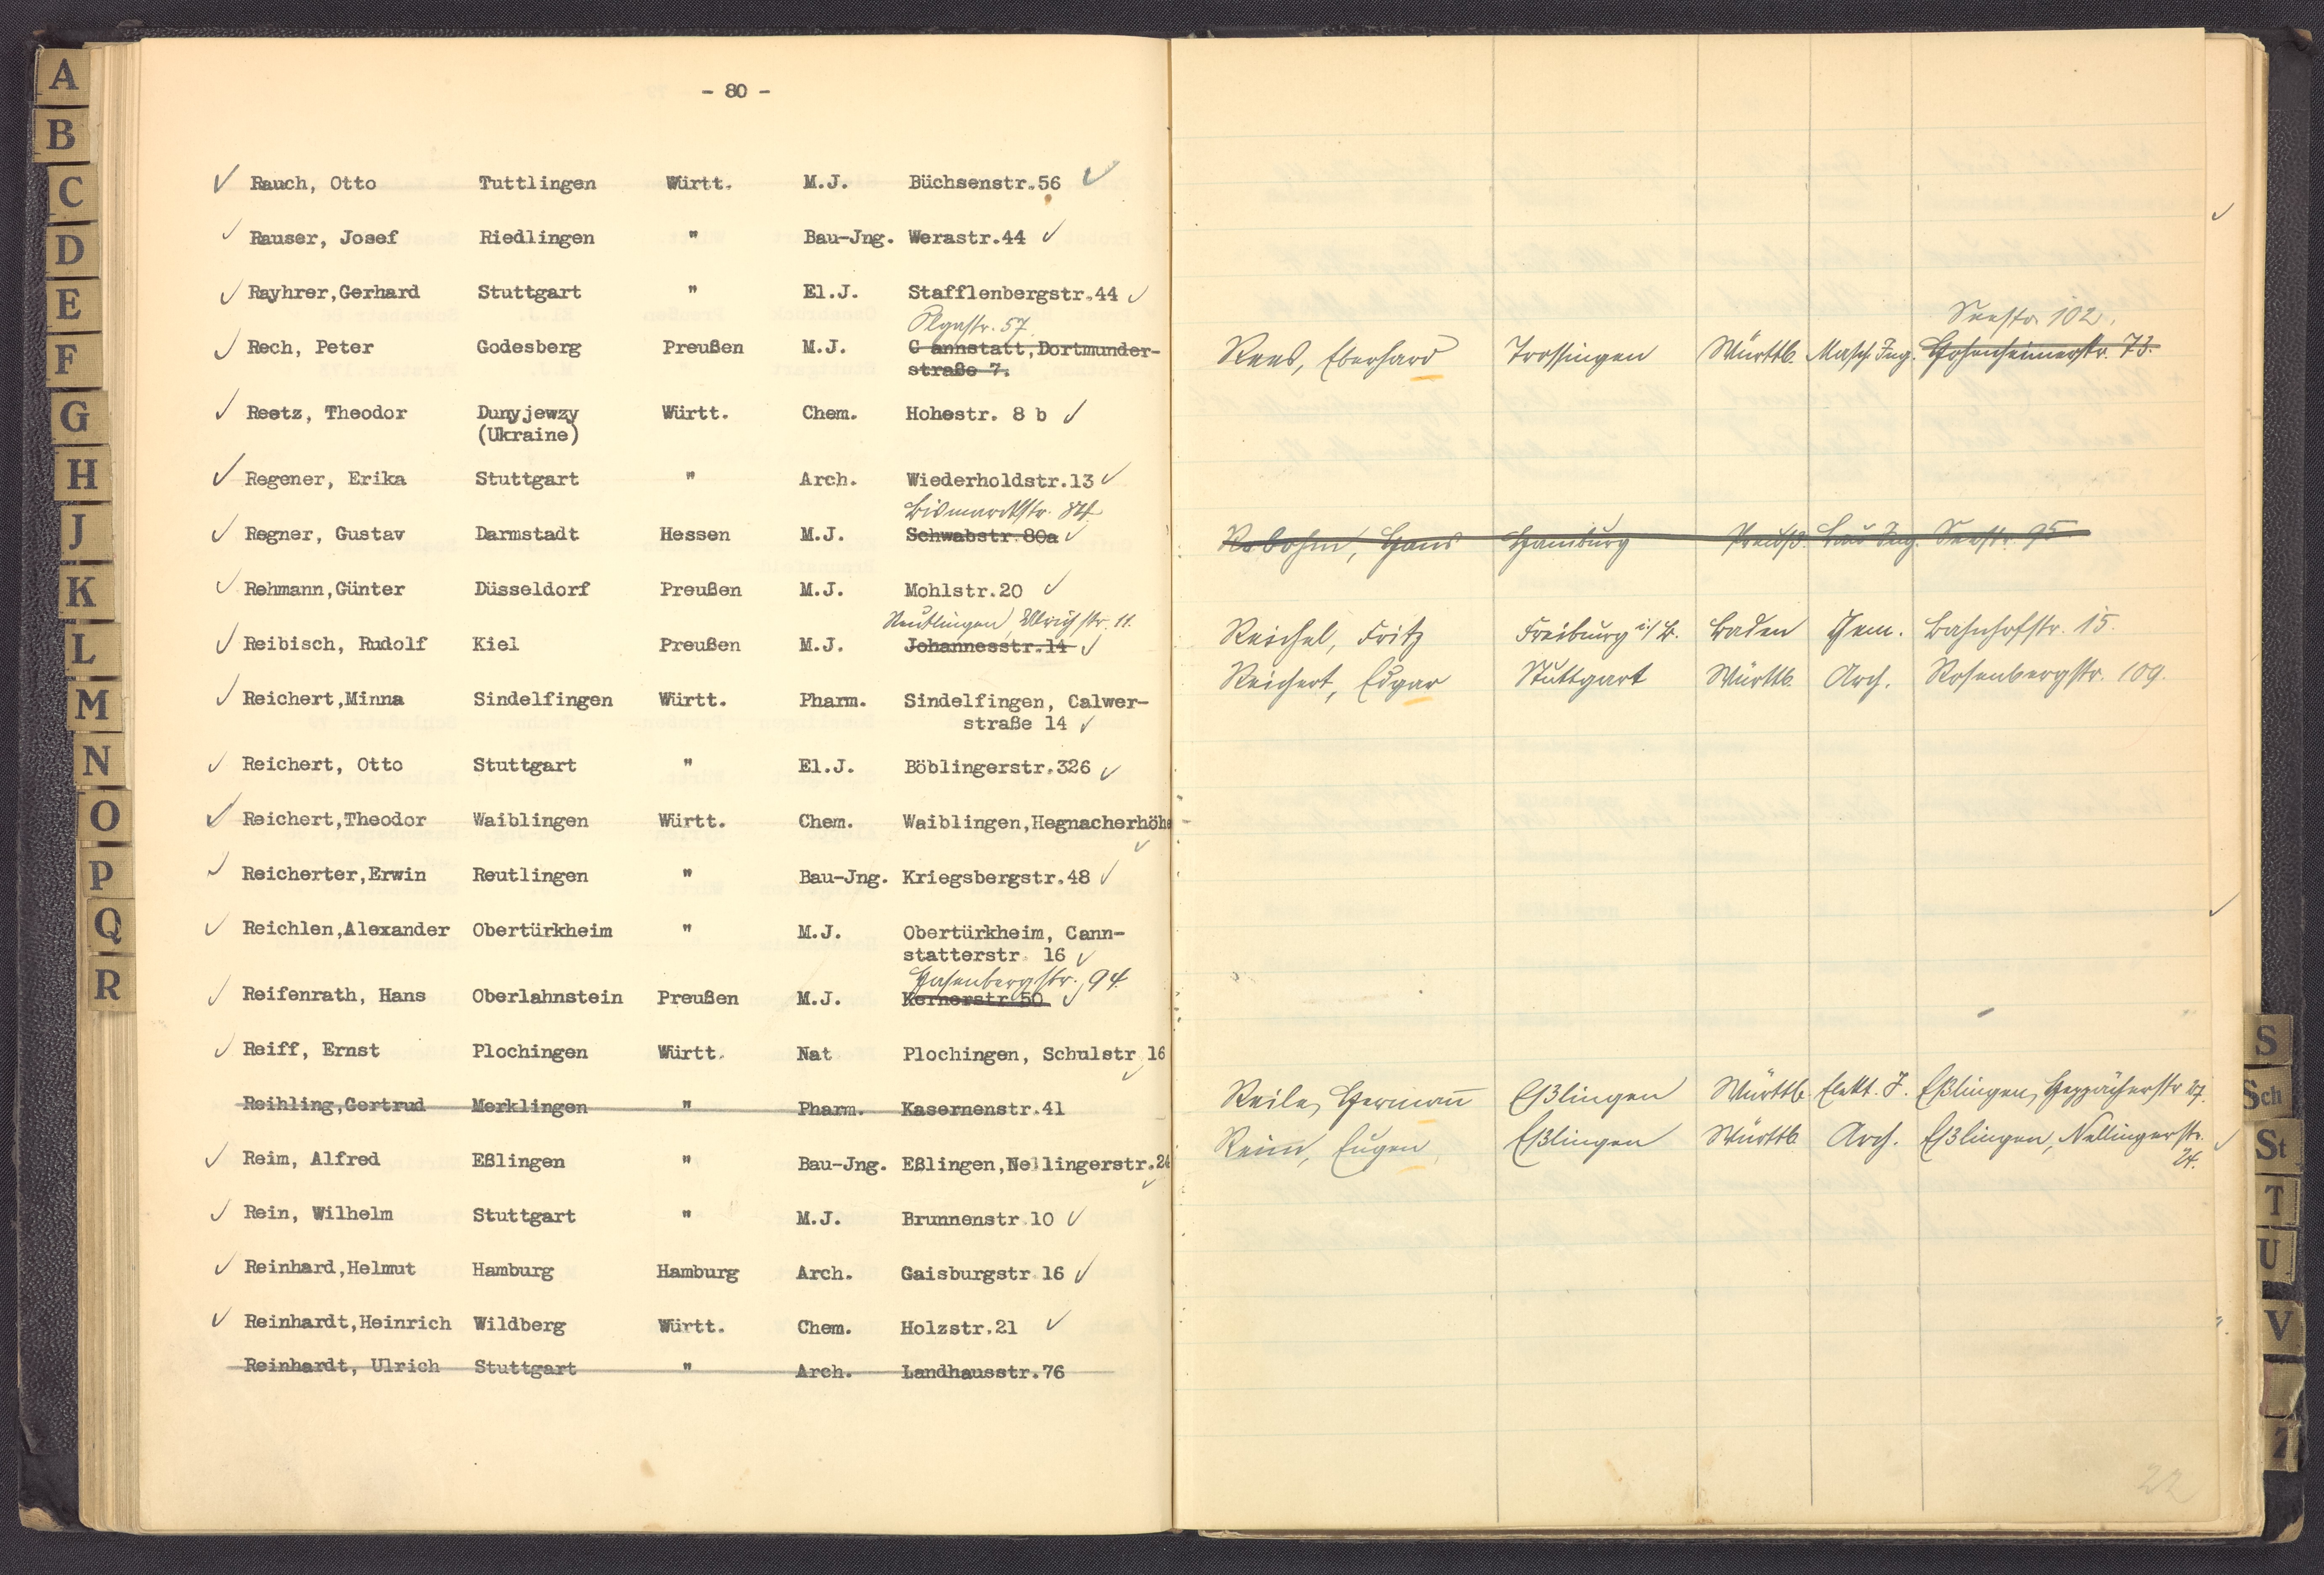 - 80 -
Rauch, Otto Tuttlingen Württ. M.J. Büchsenstr.56
Rauser, Josef Riedlingen " Bau-Jng. Werastr.44
Rayhrer,Gerhard Stuttgart " El.J. Stafflenbergstr.44
Olgastr. 57.
Rech, Peter Godesberg Preußen M.J. C annstatt,Dortmunder-
straße 7.
Reetz, Theodor Dunyjewzy Württ. Chem. Hohestr. 8 b
(Ukraine)
Regener, Erika Stuttgart " Arch. Wiederholdstr.13
Bismarckstr. 84
Regner, Gustav Darmstadt Hessen M.J. Schwabstr.80a
Rehmann,Günter Düsseldorf Preußen M.J. Mohlstr.20
Reutlingen, Ulrichstr. 11.
Reibisch, Rudolf Kiel Preußen M.J. Johannesstr.14
Reichert,Minna Sindelfingen Württ. Pharm. Sindelfingen, Calwer-
straße 14
Reichert, Otto Stuttgart " El.J. Böblingerstr.326
Reichert,Theodor Waiblingen Württ. Chem. Waiblingen,Hegnacherhöhe
Reicherter,Erwin Reutlingen " Bau-Jng. Kriegsbergstr.48
Reichlen,Alexander Obertürkheim " M.J. Obertürkheim, Cann-
statterstr. 16
Hasenbergstr. 94
Reifenrath, Hans Oberlahnstein Preußen M.J. Kernerstr.50
Reiff, Ernst Plochingen Württ. Nat Plochingen, Schulstr 16
Reihling,Gertrud Merklingen " Pharm. Kasernenstr.41
Reim, Alfred Eßlingen " Bau-Jng. Eßlingen,Nellingerstr.24
Rein, Wilhelm Stuttgart " M.J. Brunnenstr.10
Reinhard,Helmut Hamburg Hamburg Arch. Gaisburgstr.16
Reinhardt,Heinrich Wildberg Württ. Chem. Holzstr.21
Reinhardt, Ulrich Stuttgart " Arch. Landhausstr.76
Seestr. 102.
Rees, Eberhard Trossingen Württb. Masch. Ing. 73.
Rebohm, Hans Hamburg Preuß. Bau Ing. Seestr. 95
Reichel, Fritz Freiburg i/B. Baden Chem. Bahnhofstr. 15.
Reichert, Edgar Stuttgart Württb. Arch. Rosenbergstr. 109.
Reile, Hermann Eßlingen Württb. Elekt. J. Eßlingen, 27.
Reim, Eugen Eßlingen Württb. Arch. Eßlingen, Nellingerstr.
24.
22
A
B
C
D
E
F
G
H
J
K
L
M
N
O
P
Q
R
S
Sch
St
T
U
V
Z